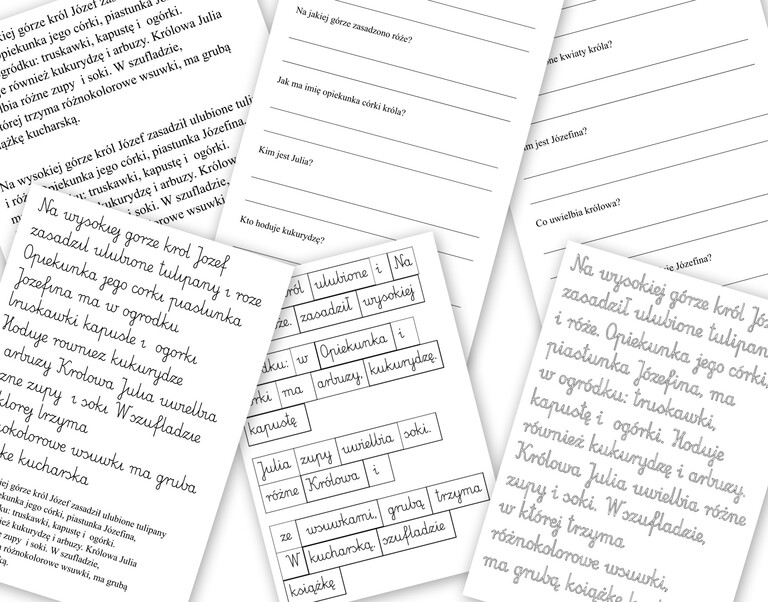 kiej górze król Józef zasadził
opiekunka jego córki, piastunka
ogródku: truskawki, kapustę i ogórki.
je również kukurydzę i arbuzy. Królowa Julia
lbia różne zupy i soki. W szufladzie,
tórej trzyma różnokolorowe wsuwki, ma grubą
ążkę kucharską.
Na wysokiej górze król Józef zasadził ulubione
i róże. Opiekunka jego córki, piastunka Józefina,
truskawki, kapustę i ogórki.
kukurydzę i arbuzy. Królowa
i soki. W szufladzie,
wsuwki
Na jakiej górze zasadzono róże?
Jak ma imię opiekunka córki króla?
Kim jest Julia?
Kto hoduje kukurydzę?
one kwiaty króla?
im jest Józefina?
Co uwielbia królowa?
Józefina?
Na wysokiej gorze krol Jozef
zasadzil ulubione tulipany i roze
Opiekunka jego corki piastunka
Jozefina ma w ogrodku
truskawki kapuste i ogorki
Hoduje rowniez kukurydze
arbuzy Krolowa Julia uwielbia
zne zupy i soki W szufladzie
ktorej trzyma
okolorowe wsuwki ma gruba
ke kucharska
iej górze król Józef zasadził ulubione tulipany
ekunka jego córki, piastunka Józefina,
ku: truskawki, kapustę i ogórki.
eż kukurydzę i arbuzy. Królowa Julia
zupy i soki. W szufladzie,
różnokolorowe wsuwki, ma grubą
ką.
król ulubione i Na
że. zasadził wysokiej
dku: w Opiekunka i
rki ma arbuzy. kukurydzę.
kapustę
Julia zupy uwielbia soki.
różne Królowa i
ze wsuwkami, grubą trzyma
W kucharską. szufladzie
książkę
Na wysokiej górze król Józ
zasadził ulubione tulipan
i róże. Opiekunka jego córki,
piastunka Józefina, ma
w ogródku: truskawki,
kapustę i ogórki. Hoduje
również kukurydzę i arbuzy.
Królowa Julia uwielbia różne
zupy i soki. W szufladzie,
w której trzyma
różnokolorowe wsuwki,
ma grubą książkę